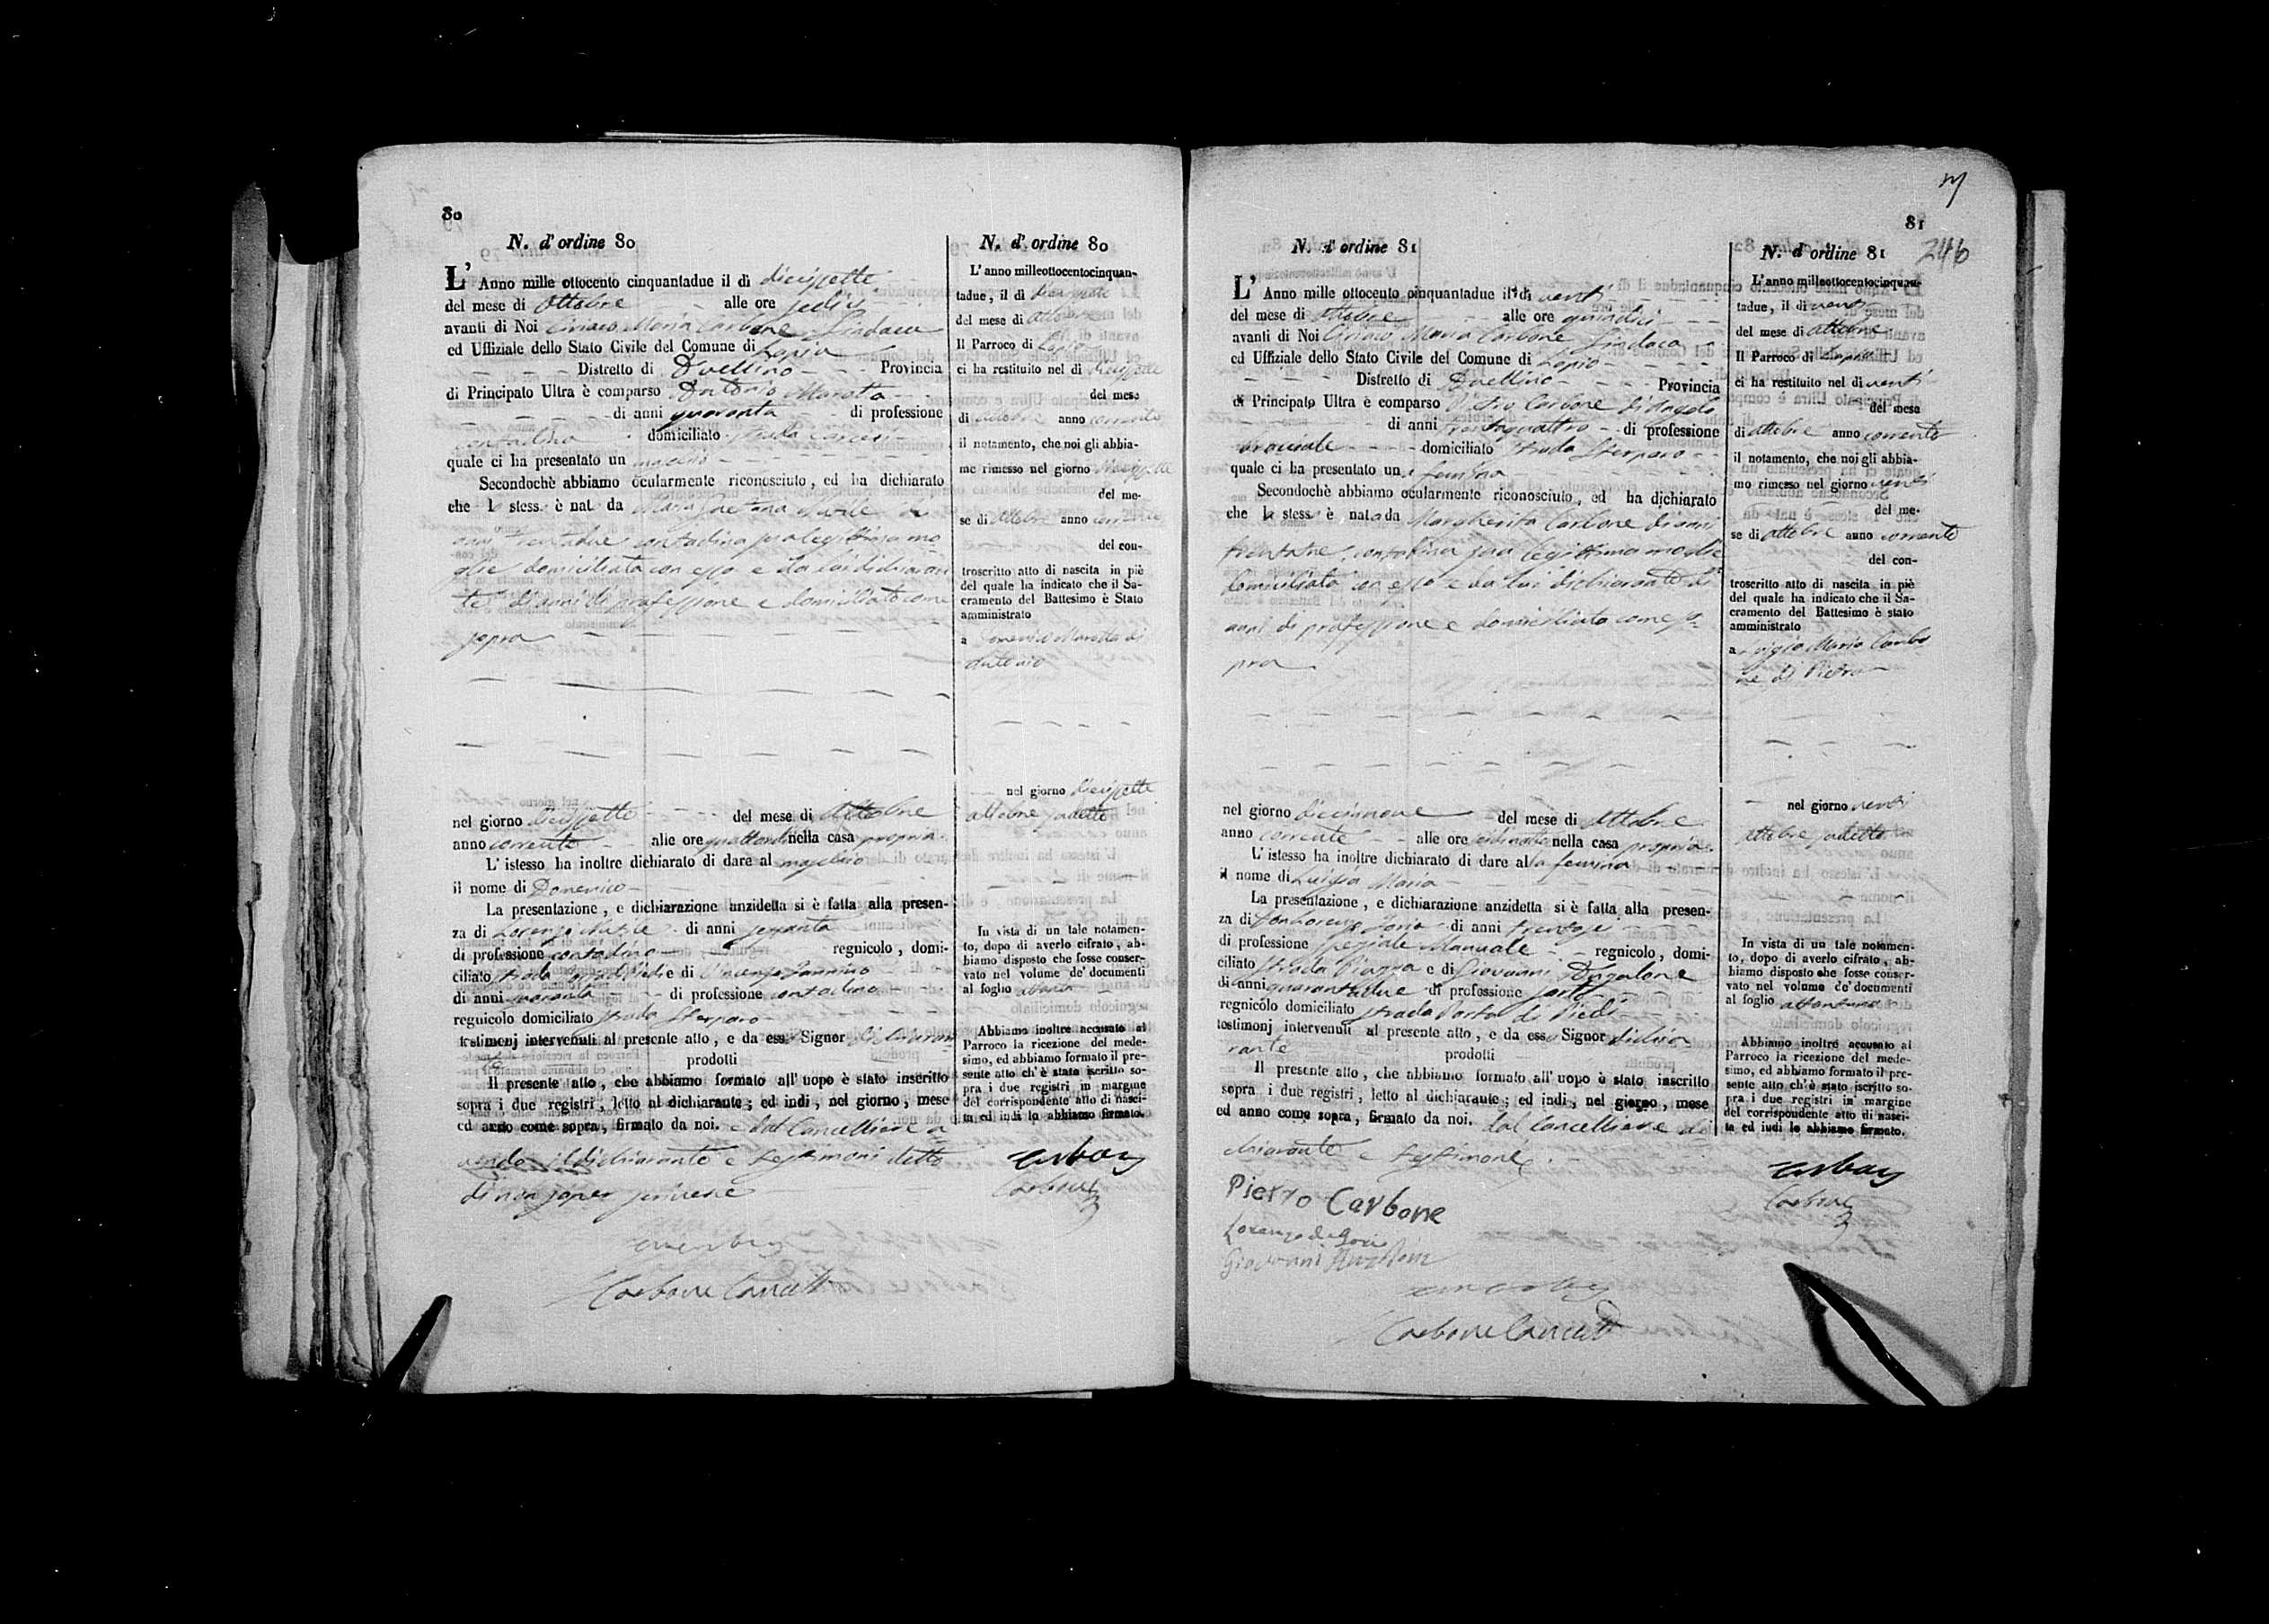 80
N. d'ordine 80
L' Anno mille ottocento cinquantadue il dì diecissette
del mese di Ottobre alle ore sedici
avanti di Noi Ciriaco Maria Carbone Sindaco
ed Uffiziale dello Stato Civile del Comune di Lapio
Distretto di Avellino Provincia
di Principato Ultra è comparso Antonio Marotta
di anni quaranta di professione
contadino domiciliato strada
quale ci ha presentato un maschio
Secondochè abbiamo ocularmente riconosciuto, ed ha dichiarato
che lo stess è nat da Maria Gaetana di
anni trentadue contadina sua legittima mo
glie domiciliata con esso e da lui dichiaran
te di anni di professione e domiciliato come
sopra
nel giorno diecissette del mese di Ottobre
anno corrente alle ore quattordici nella casa propria
L' istesso ha inoltre dichiarato di dare al maschio
il nome di Domenico
La presentazione, e dichiarazione anzidetta si è fatta alla presen-
za di Lorenzo di anni sessanta
di professione contadino regnicolo, domi-
ciliato strada e di Vincenzo Iannino
di anni quaranta di professione contadino
regnicolo domiciliato strada Sterparo
testimonj intervenuti al presente atto, e da esso Signor dichiaran
te prodotti
Il presente atto, che abbiamo formato all' uopo è stato inscritto
sopra i due registri, letto al dichiarante; ed indi, nel giorno, mese
ed anno come sopra, firmato da noi. e dal Cancelliere a
vendo il dichiarante e testimoni detto
di non saper scrivere
Carbone Cancell
N. d'ordine 80
L' anno milleottocentocinquan-
tadue, il dì diecissette
del mese di Ottobre
Il Parroco di Lapio
ci ha restituito nel dì diecissette
del mese
di Ottobre anno corrente
il notamento, che noi gli abbia-
mo rimesso nel giorno diecissette
del me-
se di Ottobre anno corrente
del con-
troscritto atto di nascita in piè
del quale ha indicato che il Sa-
cramento del Battesimo è Stato
amministrato
a Domenico Marotta di
Antonio
nel giorno diecissette
Ottobre sudetto
In vista di un tale notamen-
to, dopo di averlo cifrato, ab-
biamo disposto che fosse conser-
vato nel volume de' documenti
al foglio ottanta
Abbiamo inoltre accusato al
Parroco la ricezione del mede-
simo, ed abbiamo formato il pre-
sente atto ch'è stato iscritto so-
pra i due registri in margine
del corrispondente atto di nasci-
ta ed indi lo abbiamo firmato.
Carbone
81
246
N. d'ordine 81
L' Anno mille ottocento cinquantadue il dì venti
del mese di Ottobre alle ore quindici
avanti di Noi Ciriaco Maria Carbone Sindaco
ed Uffiziale dello Stato Civile del Comune di Lapio
Distretto di Avellino Provincia
di Principato Ultra è comparso Pietro Carbone di Angelo
di anni trentaquattro di professione
bracciale domiciliato strada Sterparo
quale ci ha presentato una femina
Secondochè abbiamo ocularmente riconosciuto, ed ha dichiarato
che la stess è nata da Margherita Carbone di anni
trentatre contadina sua legittima moglie
domiciliata con esso e da lui dichiarante di
anni di professione e domiciliato come so
pra
nel giorno diecinnove del mese di Ottobre
anno corrente alle ore nella casa propria
L' istesso ha inoltre dichiarato di dare alla femina
il nome di Luigia Maria
La presentazione, e dichiarazione anzidetta si è fatta alla presen-
za di Don Lorenzo di anni trentasei
di professione speziale Manuale regnicolo, domi-
ciliato strada Piazza e di Giovanni Anzalone
di anni quarantadue di professione sarto
regnicolo domiciliato strada Porta di Piedi
testimonj intervenuti al presente atto, e da esso Signor dichia
rante prodotti
Il presente atto, che abbiamo formato all' uopo è stato inscritto
sopra i due registri, letto al dichiarante; ed indi, nel giorno, mese
ed anno come sopra, firmato da noi. dal Cancelliere di
chiarante e testimoni
Pietro Carbone
Giovanni Anzalone
Carbone Cancell
N. d'ordine 81
L' anno milleottocentocinquan-
tadue, il dì venti
del mese di Ottobre
Il Parroco di Lapio
ci ha restituito nel dì venti
del mese
di Ottobre anno corrente
il notamento, che noi gli abbia-
mo rimesso nel giorno venti
del me-
se di Ottobre anno corrente
del con-
troscritto atto di nascita in piè
del quale ha indicato che il Sa-
cramento del Battesimo è stato
amministrato
a Luigia Maria Carbo
ne di Pietro
nel giorno venti
Ottobre sudetto
In vista di un tale notamen-
to, dopo di averlo cifrato, ab-
biamo disposto che fosse conser-
vato nel volume de' documenti
al foglio ottantuno
Abbiamo inoltre accusato al
Parroco la ricezione del mede-
simo, ed abbiamo formato il pre-
sente atto ch'è stato iscritto so-
pra i due registri in margine
del corrispondente atto di nasci-
ta ed indi lo abbiamo firmato.
Carbone